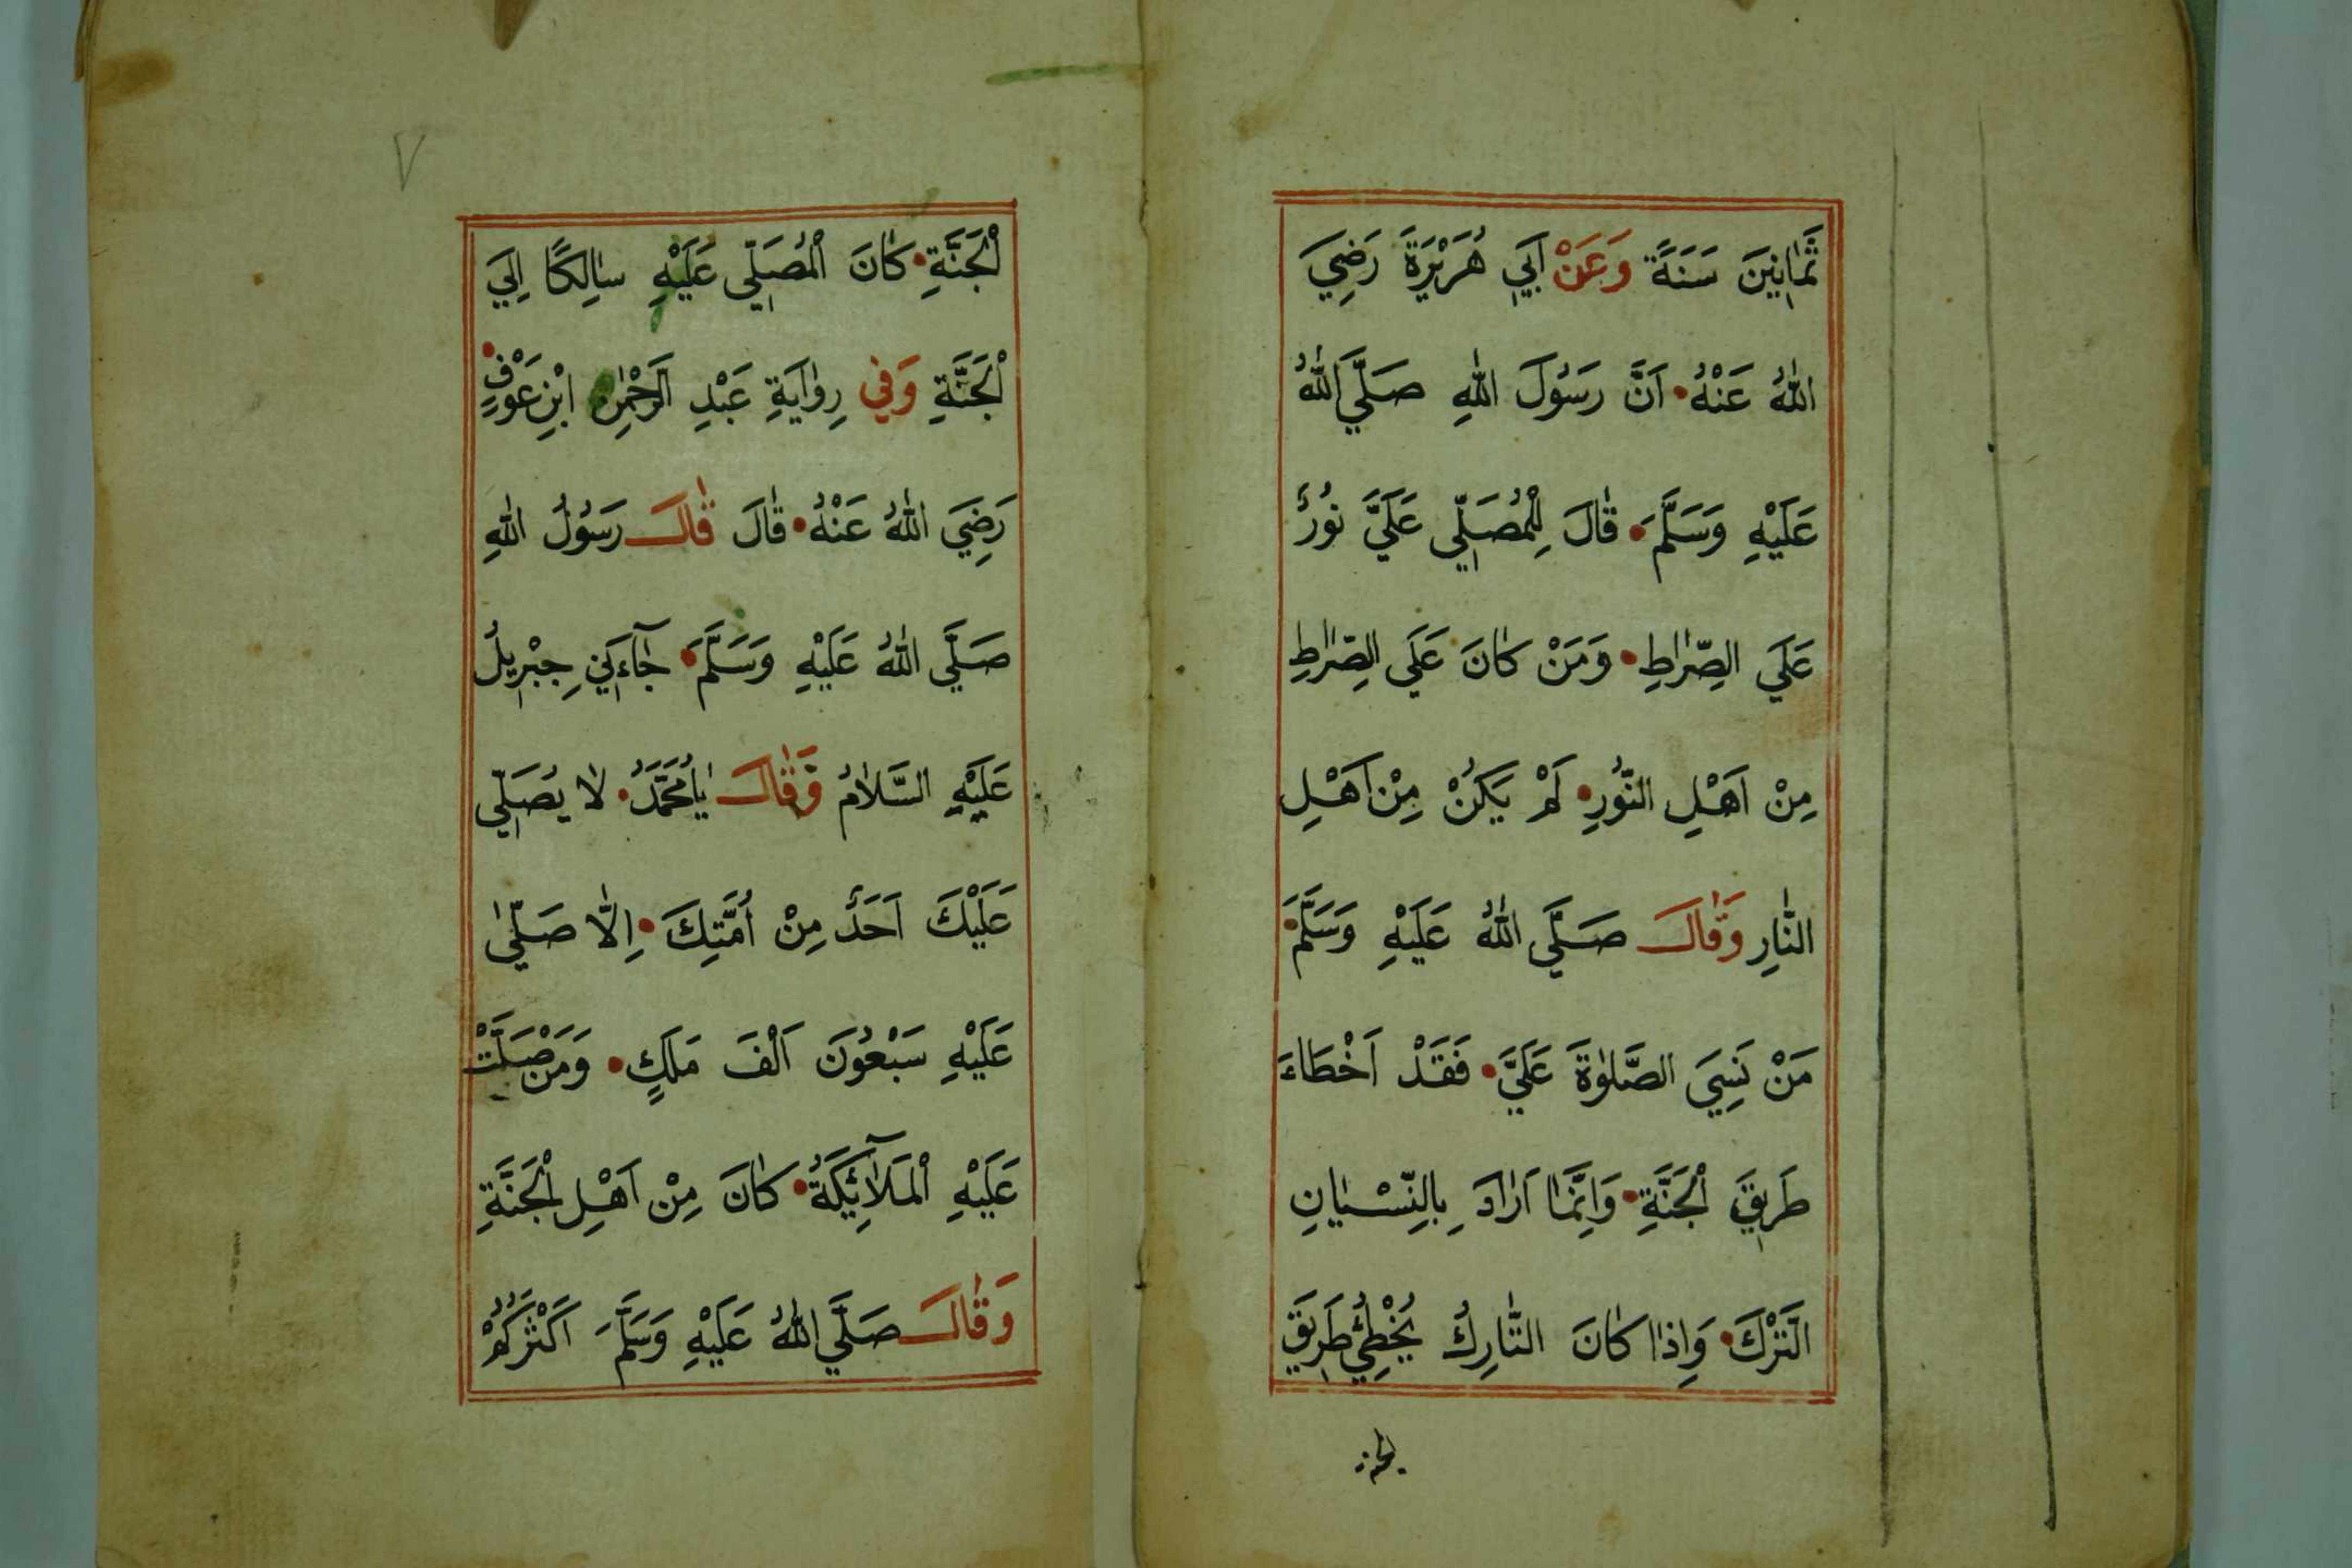 ثَمَانِينَ سَنَةً وَعَنْ اَبِي هُرَيْرَةَ رَضِيَ
اللّٰهُ عَنْهُ اَنَّ رَسُولَ اللّٰهِ صَلَّي اللّٰهُ
عَلَيْهِ وَسَلَّمَ قَالَ لِلْمُصَلِّي عَلَيَّ نُورٌ
عَلَي الصِّرَاطِ وَمَنْ كَانَ عَلَي الصِّرَاطِ
مِنْ اَهْلِ النُّورِ لَمْ يَكُنْ مِنْ اَهْلِ
النَّارِ وَقَالَ صَلَّي اللّٰهُ عَلَيْهِ وَسَلَّمَ
مَنْ نَسِيَ الصَّلٰوةَ عَلَيَّ فَقَدْ اَخْطَاءَ
طَرِيقَ الْجَنَّةِ وَاِنَّمَا اَرَادَ بِالنِّسْيَانِ
التَّرْكَ وَاِذَا كَانَ التَّارِكُ يُخْطِئُ طَرِيقَ
٧
الْجَنَّةِ كَانَ الْمُصَلِّي عَلَيْهِ سَالِكًا اِلَي
الْجَنَّةِ وَفِي رِوَايَةِ عَبْدِ الرَّحْمٰنِ ابْنِ عَوْفٍ
رَضِيَ اللّٰهُ عَنْهُ قَالَ قَالَ رَسُولُ اللّٰهِ
صَلَّي اللّٰهُ عَلَيْهِ وَسَلَّمَ جَآءَنِي جِبْرِيلُ
عَلَيْهِ السَّلَامُ وَقَالَ يَامُحَمَّدُ لَا يُصَلِّي
عَلَيْكَ اَحَدٌ مِنْ اُمَّتِكَ اِلَّا صَلّٰي
عَلَيْهِ سَبْعُونَ اَلْفَ مَلَكٍ وَمَنْ صَلَّتْ
عَلَيْهِ الْمَلَآئِكَةُ كَانَ مِنْ اَهْلِ الْجَنَّةِ
وَقَالَ صَلَّي اللّٰهُ عَلَيْهِ وَسَلَّمَ اَكْثَرُكُمْ